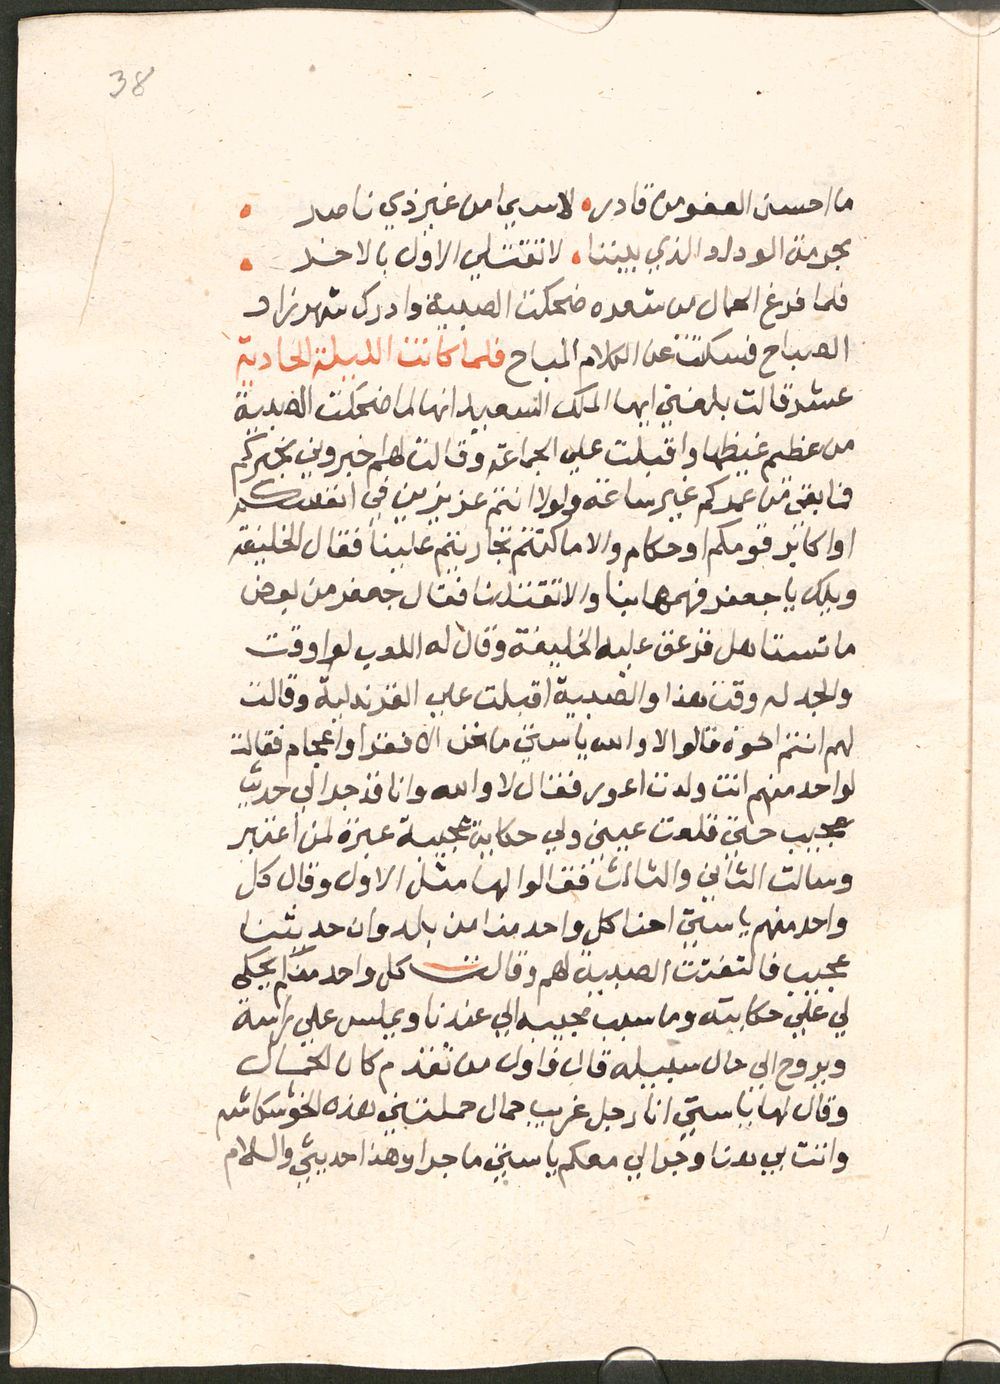 38
ما احسن العفو من قادر • لا سيما من غير ذي ناصر •
بحرمة الوداد الذي بيننا • لا تقتلي الاول بالاخر •
فلما فرغ الحمال من شعره ضحكت الصبية وادرك شهرزاد
الصباح فسكتت عن الكلام المباح فلما كانت الليلة الحادية
عشر قالت بلغني ايها الملك السعيد انها لما ضحكت الصبية
من عظيم غيظها واقبلت علي الجماعة وقالت لهم خبروني بخبركم
فما بقي من عمركم غير ساعة ولولا انتم عزيزين في انفسكم
او اكابر قومكم او حكام والا ما كنتم تجاريتم علينا فقال الخليفة
ويلك يا جعفر فهمها بنا والا تقتلنا فقال جعفر من بعض
ما تستاهل فزعق عليه الخليفة وقال له اللعب لو اوقت
والجد له وقت هذا والصبية اقبلت علي القرندلية وقالت
لهم انتم اخوة قالوا لا والله يا ستي ما نحن الا فقرا واعجام فقالت
لواحد منهم انت ولدت اعور فقال لا والله وانا قد جرا لي حديث
عجيب حتي قلعت عيني ولي حكاية عجيبة عبرة لمن اعتبر
وسالت الثاني والثالث فقالوا لها مثل الاول وقال كل
واحد منهم يا ستي احنا كل واحد منا من بلد وان حديثنا
عجيب فالتفتت الصبية لهم وقالت كل واحد منكم يحكي
لي علي حكايته وما سبب مجيبه الي عندنا ويملس علي راسه
ويروح الي حال سبيله قال فاول من تقدم كان الحمال
وقال لها يا ستي انا رجل غريب حمال حملتني هذه الخوشكاشه
واتت بي هنا وجرا لي معكم يا ستي ما جرا وهذا حديثي والسلام